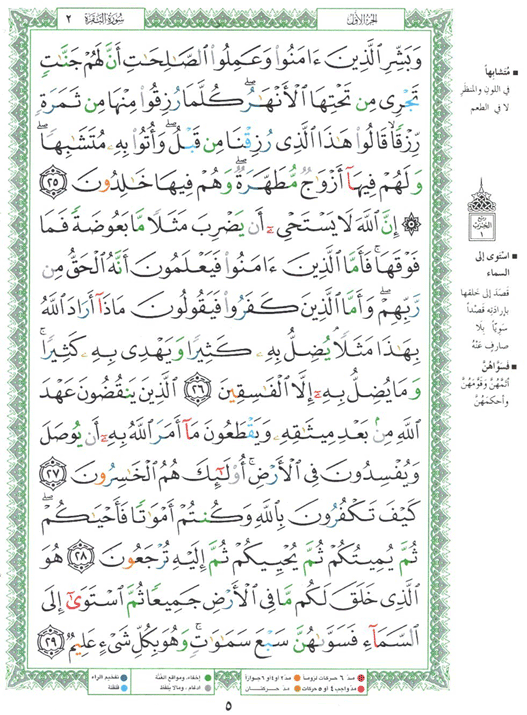 الجزء الأول
سورة البقرة ٢
وَبَشِّرِ ٱلَّذِينَ ءَامَنُوا۟ وَعَمِلُوا۟ ٱلصَّـٰلِحَـٰتِ أَنَّ لَهُمْ جَنَّـٰتٍ
تَجْرِى مِن تَحْتِهَا ٱلْأَنْهَـٰرُ ۖ كُلَّمَا رُزِقُوا۟ مِنْهَا مِن ثَمَرَةٍ
رِّزْقًا ۙ قَالُوا۟ هَـٰذَا ٱلَّذِى رُزِقْنَا مِن قَبْلُ ۖ وَأُتُوا۟ بِهِۦ مُتَشَـٰبِهًا ۖ
وَلَهُمْ فِيهَآ أَزْوَٰجٌ مُّطَهَّرَةٌ ۖ وَهُمْ فِيهَا خَـٰلِدُونَ ٢٥
۞ إِنَّ ٱللَّهَ لَا يَسْتَحْىِۦٓ أَن يَضْرِبَ مَثَلًا مَّا بَعُوضَةً فَمَا
فَوْقَهَا ۚ فَأَمَّا ٱلَّذِينَ ءَامَنُوا۟ فَيَعْلَمُونَ أَنَّهُ ٱلْحَقُّ مِن
رَّبِّهِمْ ۖ وَأَمَّا ٱلَّذِينَ كَفَرُوا۟ فَيَقُولُونَ مَاذَآ أَرَادَ ٱللَّهُ
بِهَـٰذَا مَثَلًا ۘ يُضِلُّ بِهِۦ كَثِيرًا وَيَهْدِى بِهِۦ كَثِيرًا ۚ
وَمَا يُضِلُّ بِهِۦٓ إِلَّا ٱلْفَـٰسِقِينَ ٢٦ ٱلَّذِينَ يَنقُضُونَ عَهْدَ
ٱللَّهِ مِنۢ بَعْدِ مِيثَـٰقِهِۦ وَيَقْطَعُونَ مَآ أَمَرَ ٱللَّهُ بِهِۦٓ أَن يُوصَلَ
وَيُفْسِدُونَ فِى ٱلْأَرْضِ ۚ أُو۟لَـٰٓئِكَ هُمُ ٱلْخَـٰسِرُونَ ٢٧
كَيْفَ تَكْفُرُونَ بِٱللَّهِ وَكُنتُمْ أَمْوَٰتًا فَأَحْيَـٰكُمْ ۖ
ثُمَّ يُمِيتُكُمْ ثُمَّ يُحْيِيكُمْ ثُمَّ إِلَيْهِ تُرْجَعُونَ ٢٨ هُوَ
ٱلَّذِى خَلَقَ لَكُم مَّا فِى ٱلْأَرْضِ جَمِيعًا ثُمَّ ٱسْتَوَىٰٓ إِلَى
ٱلسَّمَآءِ فَسَوَّىٰهُنَّ سَبْعَ سَمَـٰوَٰتٍ ۚ وَهُوَ بِكُلِّ شَىْءٍ عَلِيمٌ ٢٩
■ مُتشابهاً
في اللون والمنظر
لا في الطعم
ربع
الحزب
١
■ استوى إلى
السماء
قَصَدَ إلى خلقها
بإرادته قصْداً
سويّاً بلا
صارفٍ عنْهُ
■ فسوّاهنّ
أتمّهُنَّ وقوَّمَهُنَّ
وأحكمَهُنَّ
مدّ ٦ حركات لزوماً مدّ ٢ أو ٤ أو ٦ جوازاً إخفاء، ومواقع الغُنَّة تفخيم الراء
مدّ واجب ٤ أو ٥ حركات مدّ حركتان ادغام، وما لا يُلفَظ قلقلة
٥